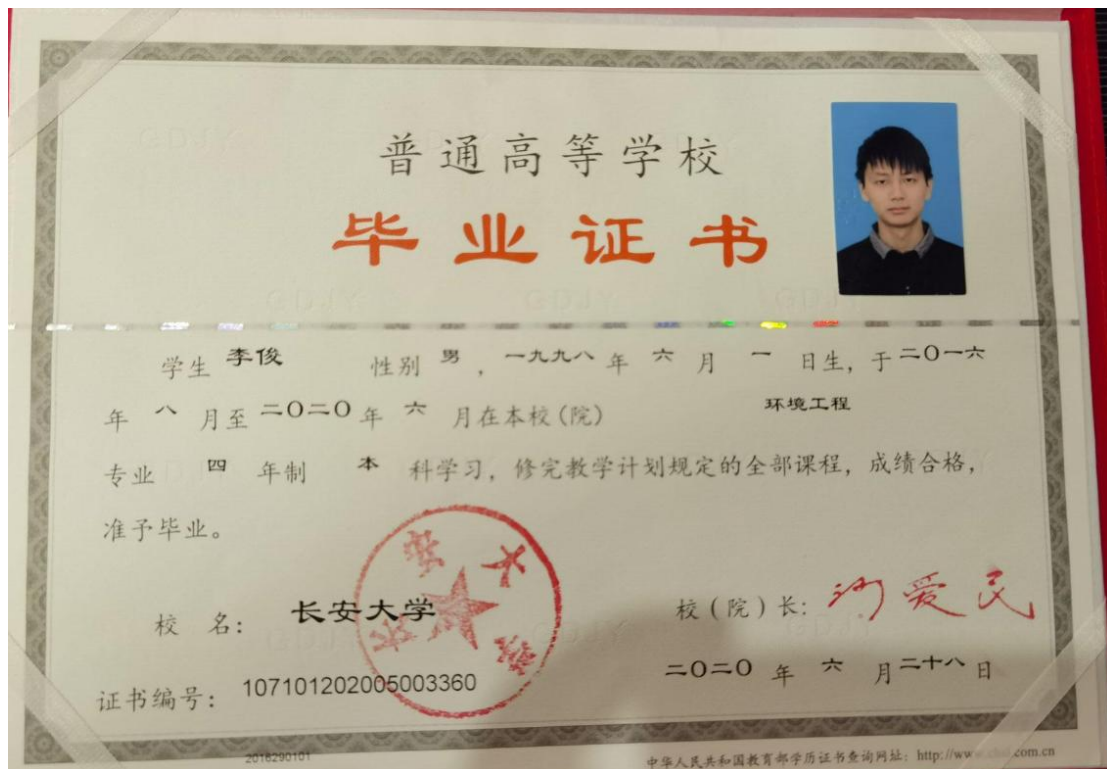 普通高等学校
毕业证书
学生 李俊 性别 男 ,一九九八 年 六 月 一 日生, 于二〇一六
年 八 月至 二〇二〇 年 六 月在本校(院) 环境工程
专业 四 年制 本 科学习, 修完教学计划规定的全部课程, 成绩合格,
准予毕业。
校 名: 长安大学
校(院)长: 沙爱民
证书编号: 107101202005003360
二〇二〇 年 六 月二十八日
2016290101
中华人民共和国教育部学历证书查询网址: http://www com.cn